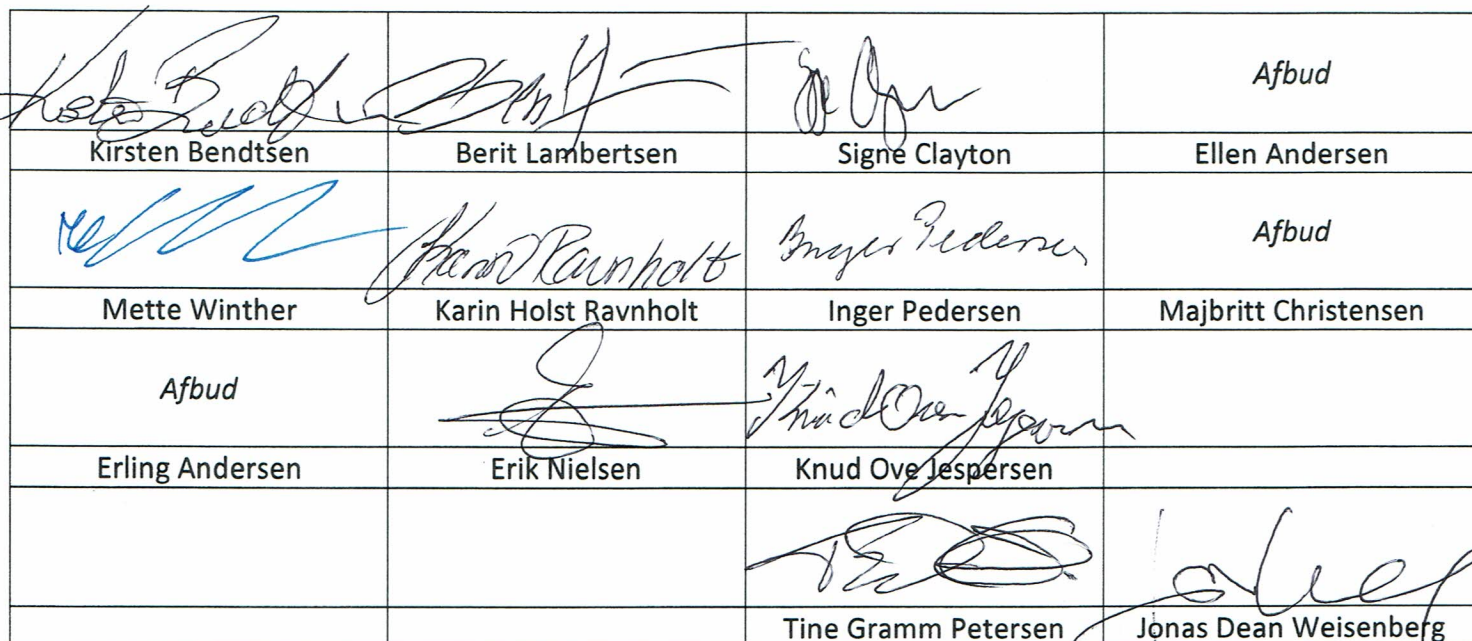 Afbud
Kirsten Bendtsen Berit Lambertsen Signe Clayton Ellen Andersen
Karin Ravnholt Inger Pedersen Afbud
Mette Winther Karin Holst Ravnholt Inger Pedersen Majbritt Christensen
Afbud Knud Ove Jespersen
Erling Andersen Erik Nielsen Knud Ove Jespersen
Tine Gramm Petersen Jonas Dean Weisenberg